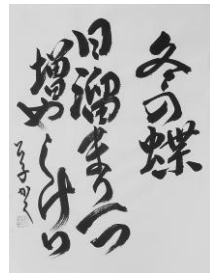 冬の蝶
日溜まり一つ
増やしけり